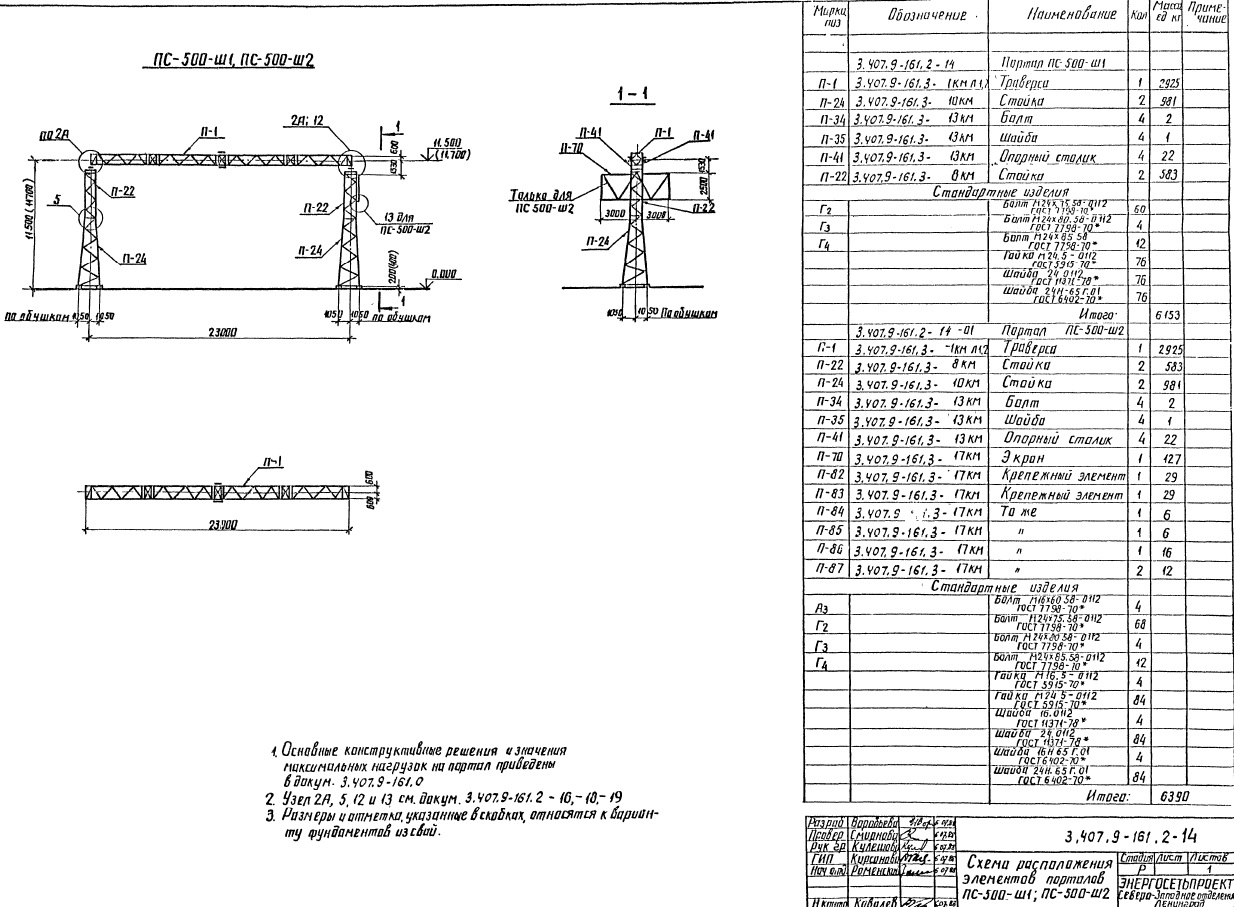 ПС-500-Ш1, ПС-500-Ш2
по 2А
П-1
2А; 12
1
600
1530
11.500
(11.700)
11.500 (11.700)
5
П-22
П-22
13 для
ПС-500-Ш2
П-24
П-24
0,000
1
по обушкам
1050
1050
1050
1050
по обушкам
23000
1-1
П-41
П-1
П-41
П-70
1530
2500
Только для
ПС 500-Ш2
3000
3000
П-22
П-24
1050
1050
По обушкам
П-1
600
600
23000
1. Основные конструктивные решения и значения
максимальных нагрузок на портал приведены
в докум. 3.407.9-161.0
2. Узел 2А, 5, 12 и 13 см. докум. 3.407.9-161.2 - 16,-18,-19
3. Размеры и отметка, указанные в скобках, относятся к вариан-
ту фундаментов из свай.
Марка, поз Обозначение Наименование Кол Масса ед кг Приме-чание
3.407.9-161.2-14 Портал ПС-500-Ш1
П-1 3.407.9-161.3- 1КМ л1,2 Траверса 1 2925
П-24 3.407.9-161.3- 10КМ Стойка 2 981
П-34 3.407.9-161.3- 13КМ Болт 4 2
П-35 3.407.9-161.3- 13КМ Шайба 4 1
П-41 3.407.9-161.3- 13КМ Опорный столик 4 22
П-22 3.407.9-161.3- 8КМ Стойка 2 583
Стандартные изделия
Г2 Болт М24х75.58-0112 ГОСТ 7798-70* 60
Г3 Болт М24х80.58-0112 ГОСТ 7798-70* 4
Г4 Болт М24х85.58 ГОСТ 7798-70* 12
Гайка М24.5-0112 ГОСТ 5915-70* 76
Шайба 24.0112 ГОСТ 11371-78* 76
Шайба 24Н-65Г.01 ГОСТ 6402-70* 76
Итого: 6153
3.407.9-161.2-14-01 Портал ПС-500-Ш2
П-1 3.407.9-161.3- 1КМ л1,2 Траверса 1 2925
П-22 3.407.9-161.3- 8КМ Стойка 2 583
П-24 3.407.9-161.3- 10КМ Стойка 2 981
П-34 3.407.9-161.3- 13КМ Болт 4 2
П-35 3.407.9-161.3- 13КМ Шайба 4 1
П-41 3.407.9-161.3- 13КМ Опорный столик 4 22
П-70 3.407.9-161.3- 17КМ Экран 1 127
П-82 3.407.9-161.3- 17КМ Крепежный элемент 1 29
П-83 3.407.9-161.3- 17КМ Крепежный элемент 1 29
П-84 3.407.9 1.3- 17КМ То же 1 6
П-85 3.407.9-161.3- 17КМ " 1 6
П-86 3.407.9-161.3- 17КМ " 1 16
П-87 3.407.9-161.3- 17КМ " 2 12
Стандартные изделия
А3 Болт М16х60.58-0112 ГОСТ 7798-70* 4
Г2 Болт М24х75.58-0112 ГОСТ 7798-70* 68
Г3 Болт М24х80.58-0112 ГОСТ 7798-70* 4
Г4 Болт М24х85.58-0112 ГОСТ 7798-70* 12
Гайка М16.5-0112 ГОСТ 5915-70* 4
Гайка М24.5-0112 ГОСТ 5915-70* 84
Шайба 16.0112 ГОСТ 11371-78* 4
Шайба 24.0112 ГОСТ 11371-78* 84
Шайба 16Н 65Г.01 ГОСТ 6402-70* 4
Шайба 24Н.65Г.01 ГОСТ 6402-70* 84
Итого: 6390
Разраб Воробьева
Провер Смирнова
Рук гр Кулешова
ГИП Кирсанова
Нач отд Роменский
Н контр Ковалев
3.407.9-161.2-14
Схема расположения
элементов порталов
ПС-500-Ш1; ПС-500-Ш2
Стадия Лист Листов
Р 1
ЭНЕРГОСЕТЬПРОЕКТ
Северо-Западное отделение
Ленинград